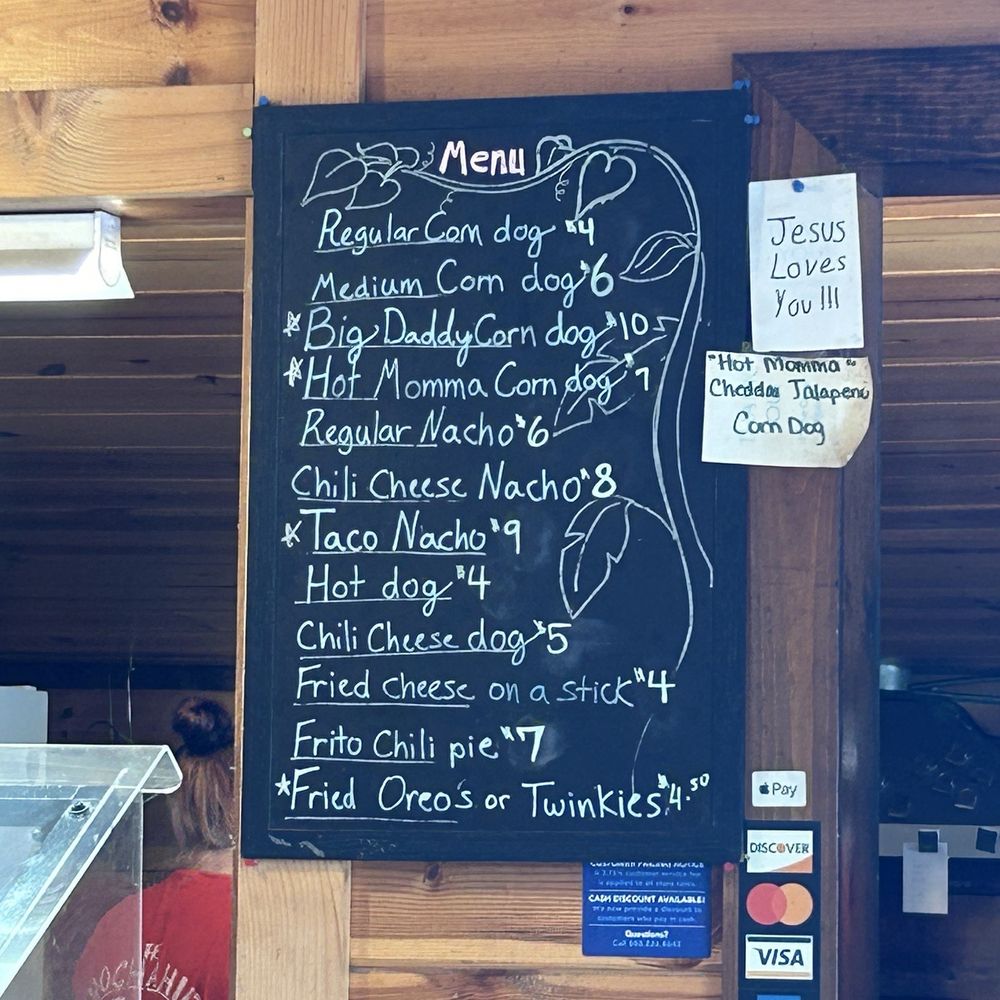 Menu
Regular Corn dog $4
Medium Corn dog $6
* Big Daddy Corn dog $10
* Hot Momma Corn dog $7
Regular Nacho $6
Chili Cheese Nacho $8
* Taco Nacho $9
Hot dog $4
Chili Cheese dog $5
Fried cheese on a stick $4
Frito Chili pie $7
* Fried Oreo's or Twinkies $4.50
Jesus
Loves
You!!!
"Hot Momma"
Cheddar Jalapeno
Corn Dog
Pay
DISCOVER
VISA
CASH DISCOUNT AVAILABLE!
customers who pay in cash.
Questions?